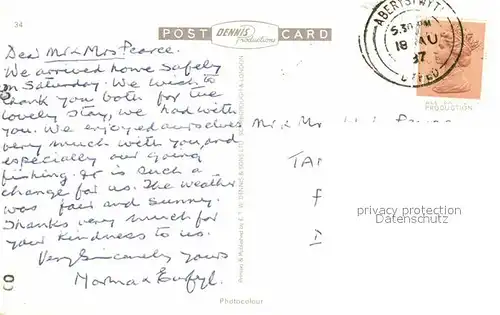 34
POST DENNIS Productions CARD
ABERYSTWYTH
5.30 PM
18 AU
87
DYFED
PRODUCTION
Dear Mr & Mrs Pearce.
We arrived home safely
on Saturday. We wish to
thank you both for the
lovely stay, we had with
you. We enjoyed ourselves
very much with you, and
especially our going
fishing. It is such a
change for us. The weather
was fair and sunny.
Thanks very much for
your kindness to us.
Very Sincerely yours
Norma &
Mr & Mr
TA
f
privacy protection
Datenschutz
Printed & Published by E.T.W. DENNIS & SONS LTD. SCARBOROUGH & LONDON
Photocolour